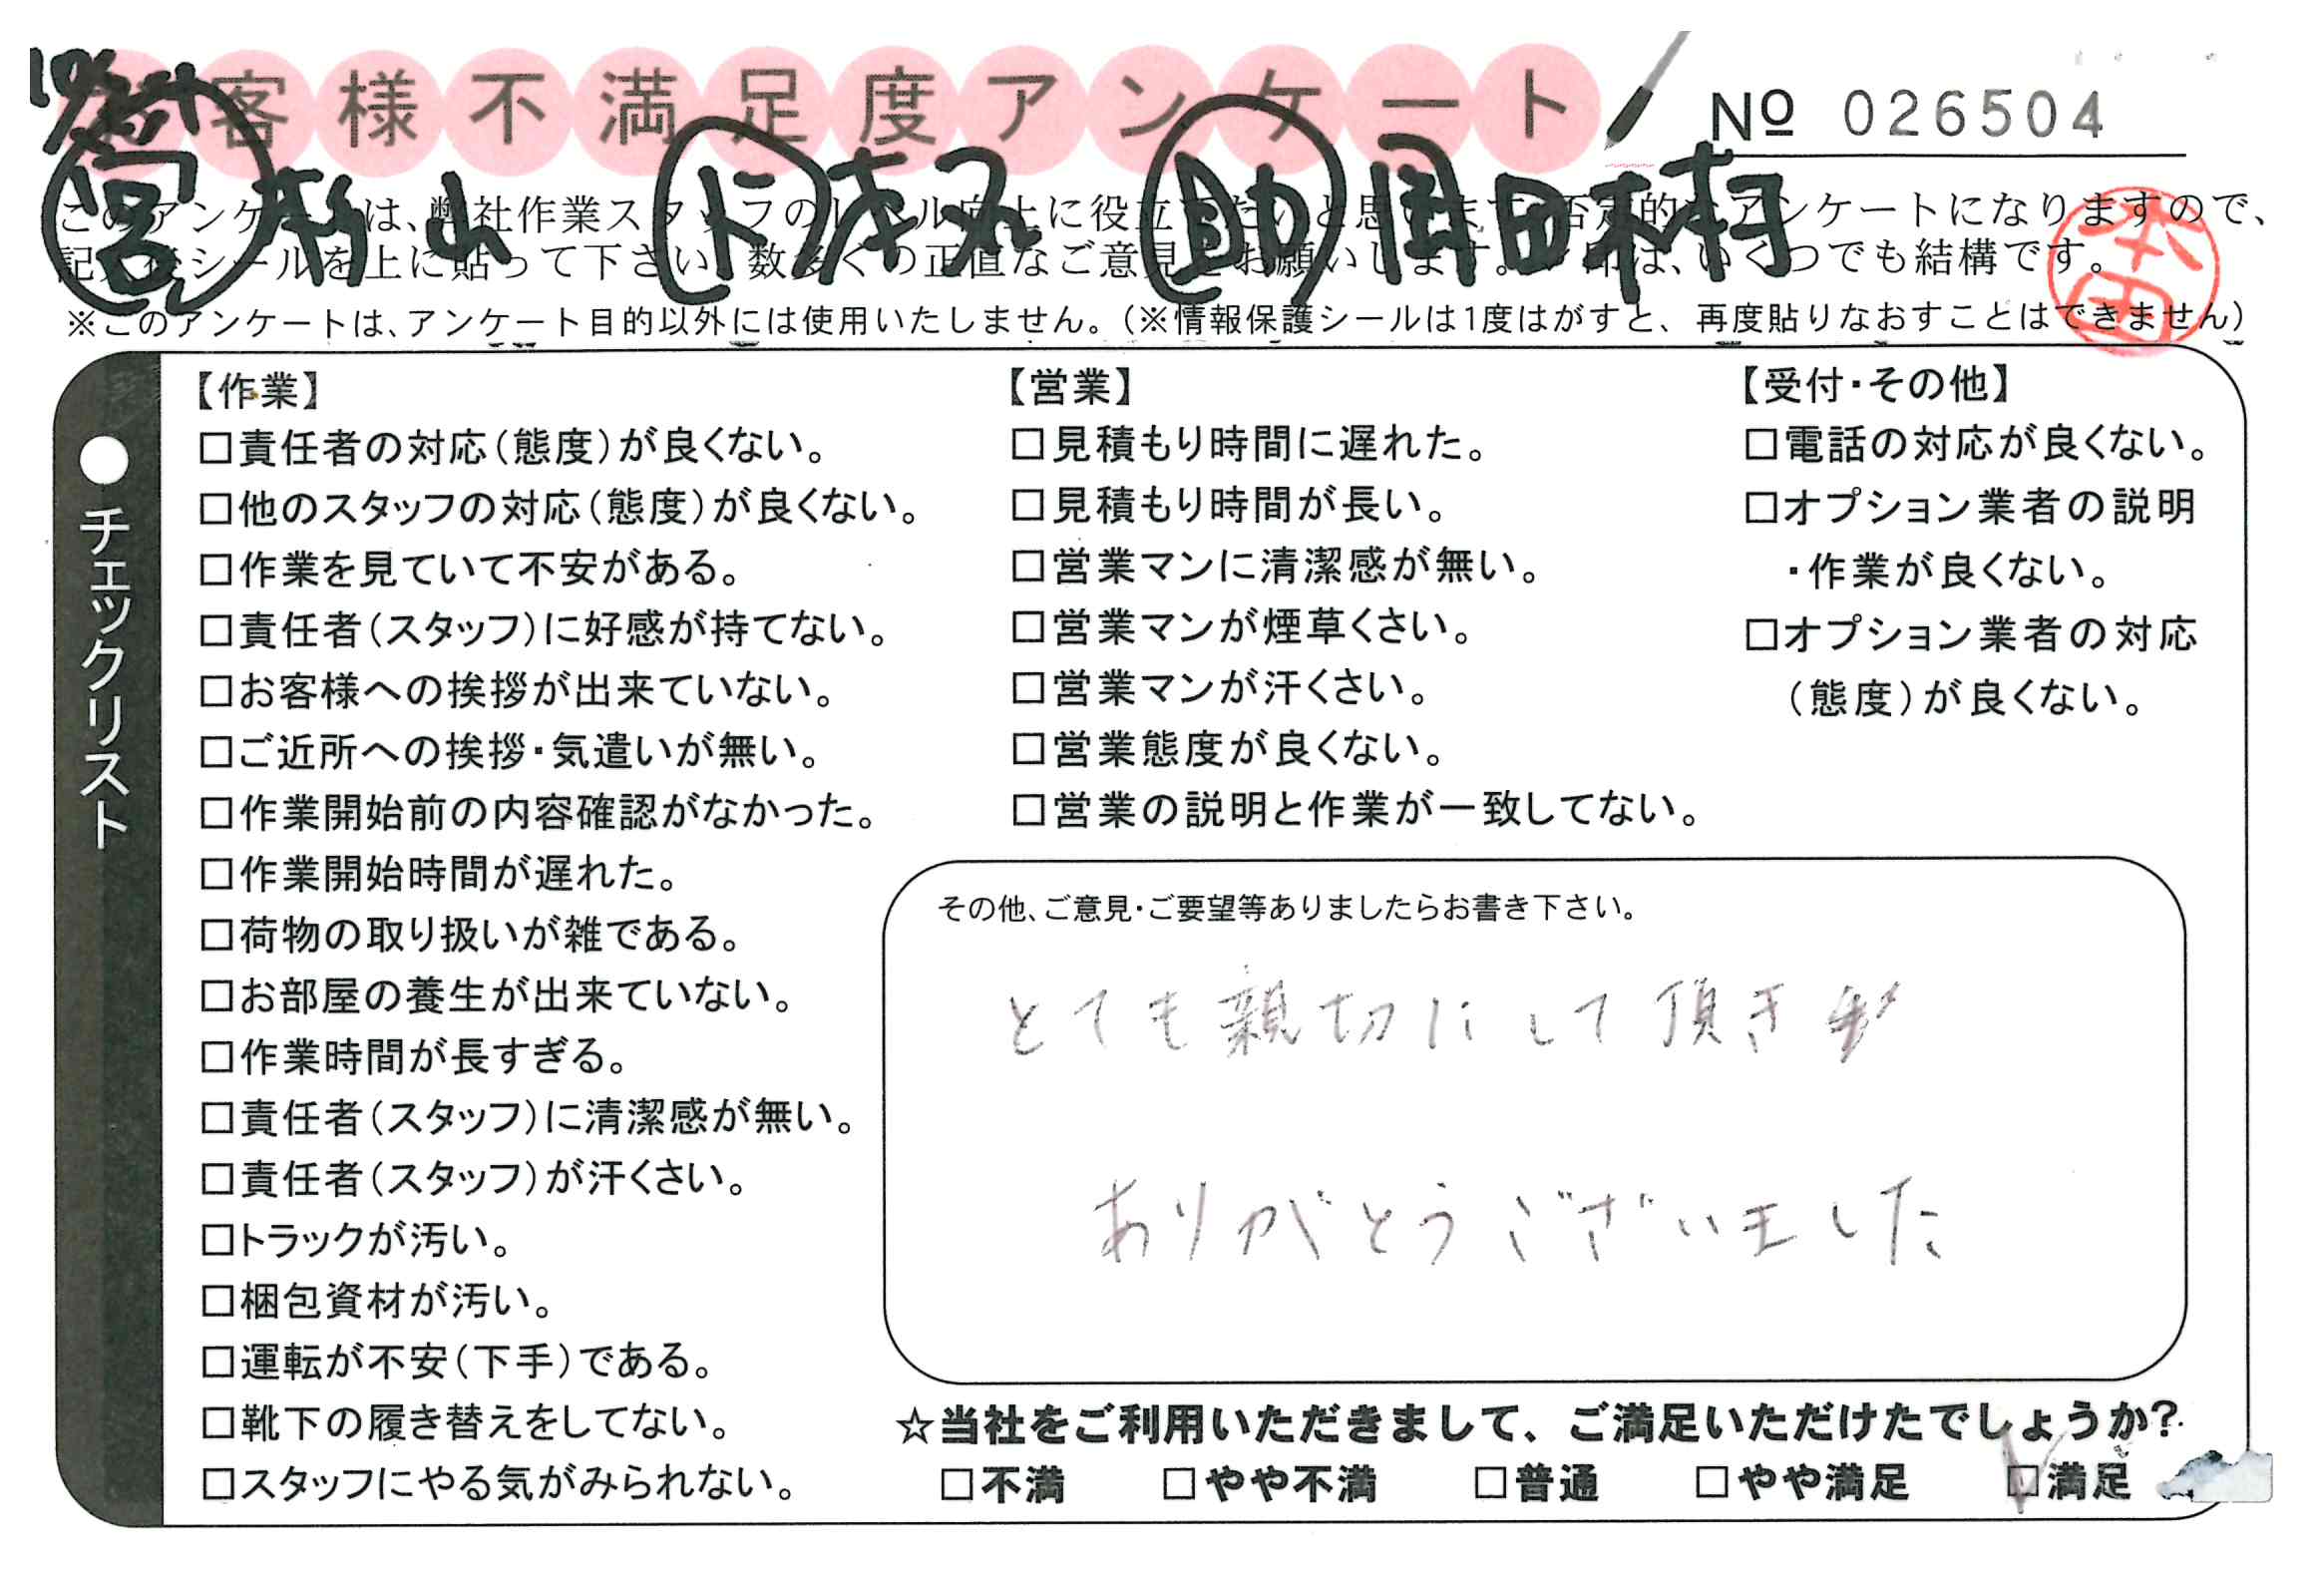 お客様不満足度アンケート
№ 026504
営 杉山 ド 本丸 助 岡田 木村
このアンケートは、弊社作業スタッフのレベル向上に役立てたいと思います。否定的なアンケートになりますので、
記入後シールを上に貼って下さい。数多くの正直なご意見をお願いします。レ印は、いくつでも結構です。
本田
※このアンケートは、アンケート目的以外には使用いたしません。（※情報保護シールは1度はがすと、再度貼りなおすことはできません）
●チェックリスト
【作業】
□責任者の対応（態度）が良くない。
□他のスタッフの対応（態度）が良くない。
□作業を見ていて不安がある。
□責任者（スタッフ）に好感が持てない。
□お客様への挨拶が出来ていない。
□ご近所への挨拶・気遣いが無い。
□作業開始前の内容確認がなかった。
□作業開始時間が遅れた。
□荷物の取り扱いが雑である。
□お部屋の養生が出来ていない。
□作業時間が長すぎる。
□責任者（スタッフ）に清潔感が無い。
□責任者（スタッフ）が汗くさい。
□トラックが汚い。
□梱包資材が汚い。
□運転が不安（下手）である。
□靴下の履き替えをしてない。
□スタッフにやる気がみられない。
【営業】
□見積もり時間に遅れた。
□見積もり時間が長い。
□営業マンに清潔感が無い。
□営業マンが煙草くさい。
□営業マンが汗くさい。
□営業態度が良くない。
□営業の説明と作業が一致してない。
【受付・その他】
□電話の対応が良くない。
□オプション業者の説明
・作業が良くない。
□オプション業者の対応
（態度）が良くない。
その他、ご意見・ご要望等ありましたらお書き下さい。
とても親切にして頂き
ありがとうございました
☆当社をご利用いただきまして、ご満足いただけたでしょうか？
□不満 □やや不満 □普通 □やや満足 ☑満足